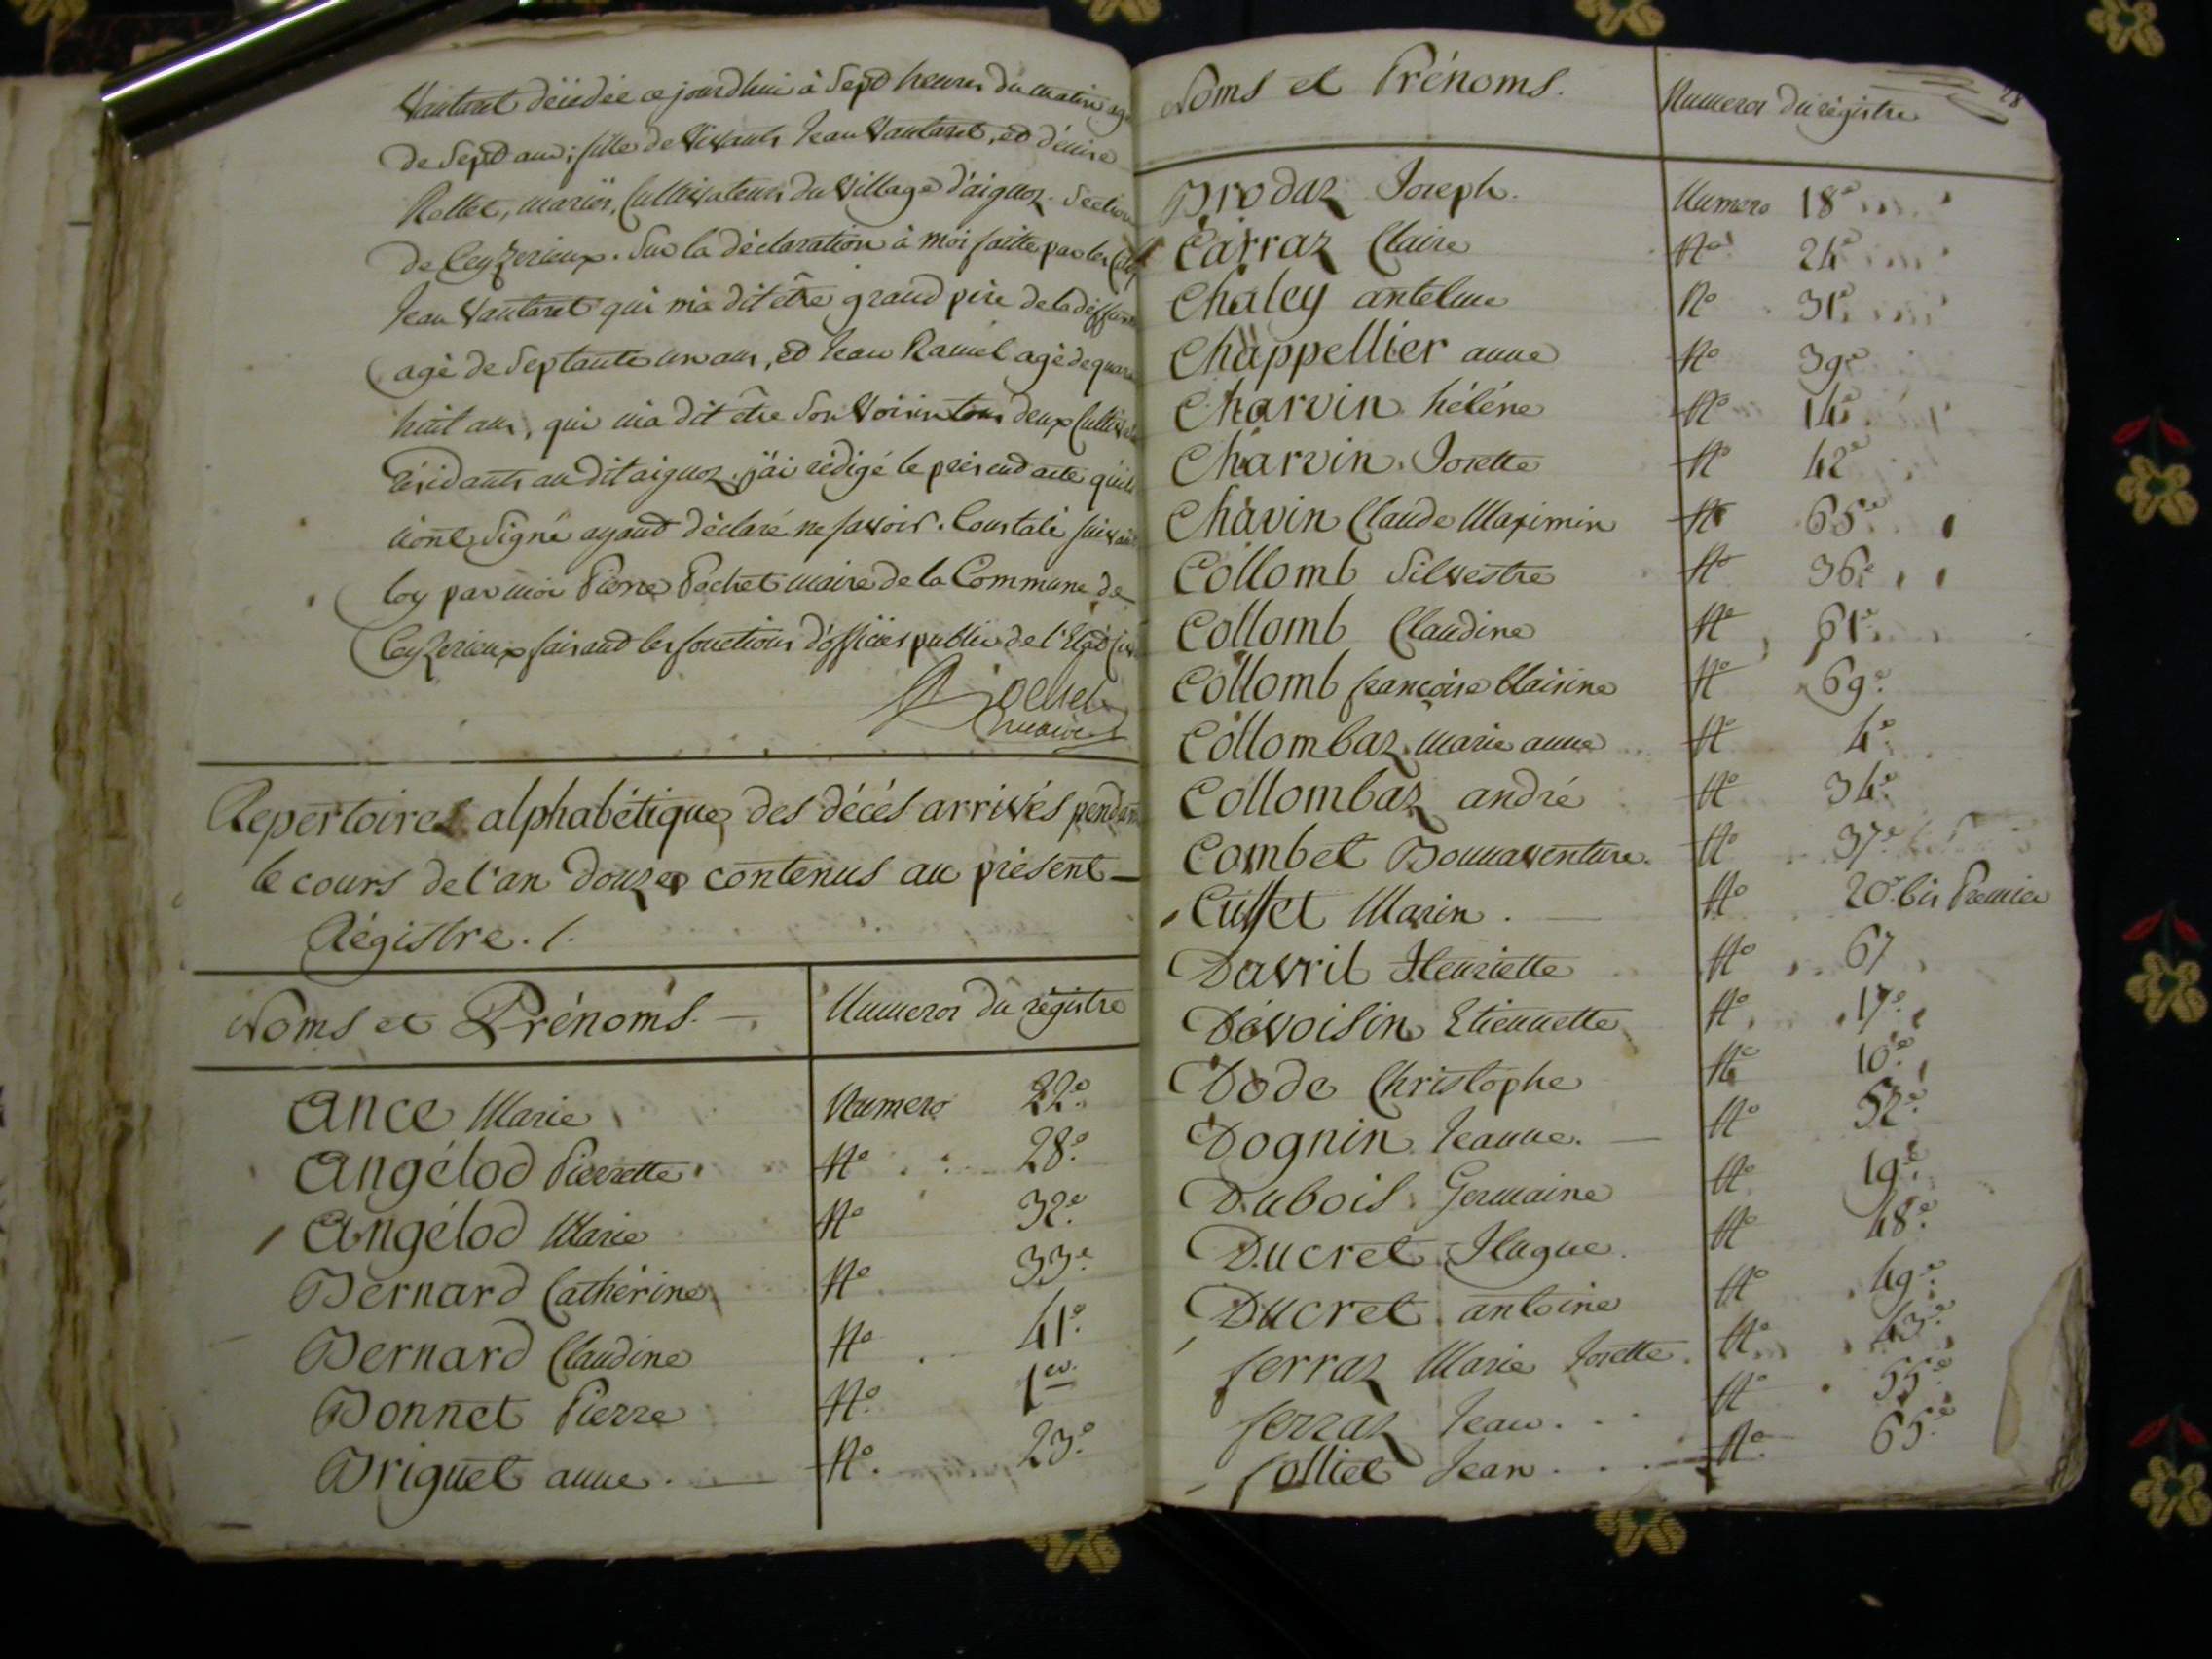 Vautaret décédée ce jourdhui à Sept heures du matin agé
de Sept ans; fille de vivants Jean Vautaret, et dénise
Rollet, mariés, Cultivateurs du Village d'aignoz. Section
de Ceyzerieux. Sur la déclaration à moi faitte par les
Jean Vautaret qui m'a dit être grand père de la
agé de Septante un ans, et Jean Ramel agé de
huit ans, qui m'a dit être son Voisin tous deux
résidants au dit aignoz. j'ai rédigé le présend acte qu'ils
n'ont Signé ayand déclaré ne savoir. Constaté
loy par moi Pierre Pochet maire de la Commune de
Ceyzerieux faisand les fonctions d'officier public de l'Etad
Pochet
maire
Repertoire alphabétique des décés arrivés
le cours de l'an douze contenus au présent
Régistre. /.
Noms et Prénoms. Numeros du régistre
Ance Marie Numero 22e
Angélod Pierrette No 28e
Angélod Marie No 32e
Bernard Cathérine No 33e
Bernard Claudine No 41e
Bonnet Pierre No 1er
Briguet anne. No. 23e
28
Noms et Prénoms. Numeros du régistre
Brodaz Joseph. Numero 18e
Carraz Claire No 24e
Chaley antelme No 31e
Chappellier anne No 39e
Charvin hélène No 14e
Charvin Josette No 42e
Chavin Claude Maximin No 65e
Collomb Silvestre No 36e
Collomb Claudine No 61e
Collomb françoise Claisine No 69e
Collombaz marie anne No 4e
Collombaz andré No 34e
Combet Bonnaventure. No 37e
Cuffet Marin. No 20e bis Premier
Davril Henriette No 67
Dévoisin Etiennette No 17e
Dode Christophe No 10e
Dognin Jeanne. No 52e
Dubois Germaine No 19e
Ducret Hugue. No 48e
Ducret antoine No 49e
ferraz Marie Josette. No 43e
ferraz Jean. No 55e
folliet Jean No. 65e